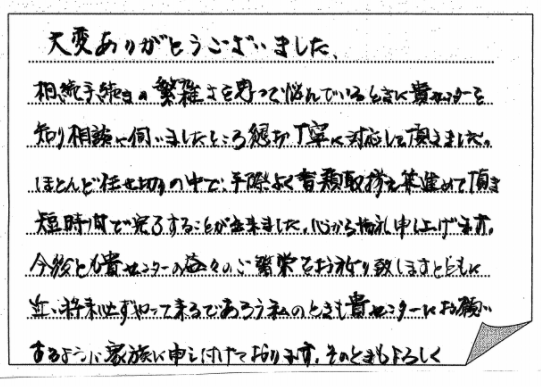 大変ありがとうございました、
相続手続きの繁雑さを思って悩んでいるときに貴センターを
知り相談に伺いましたところ懇切丁寧に対応して頂きました。
ほとんど任せ切りの中で、手際よく書類取揃え等進めて頂き
短時間で完了することが出来ました。心から御礼申し上げます。
今後とも貴センターの益々のご繁栄をお祈り致しますとともに
近い将来必ずやって来るであろう私のときも貴センターにお願い
するように家族に申し付けております。そのときもよろしく